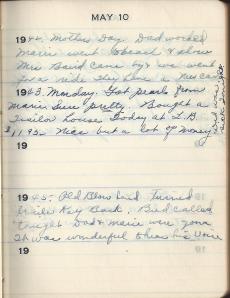 MAY 10
1942. Mother Day. Dad worked
Marie went to beach & show
Mrs Baird came by & we went
for a ride They have a new car
1943. Monday. Got pearls from
Marie Sure pretty. Bought a
Trailer house today at L.B.
$1195. Nice but a lot of money
19
1945. Old Blow hard turned
Key Back. Bud called
tonight Dad & Marie were gone
It was wonderful to hear his voice
19